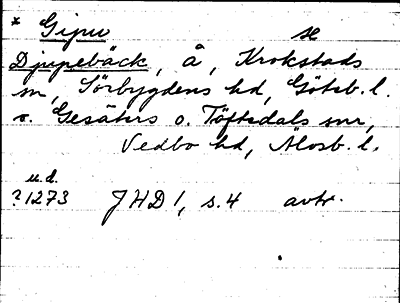 * Gipu se
Djupebäck, å, Krokstads
sn, Sörbygdens hd, Göteb. l.
o. Gesäters o. Töftedals snr,
Vedbo hd, Älvsb. l.
u.d.
? 1273 JHD 1, s. 4 avtr.